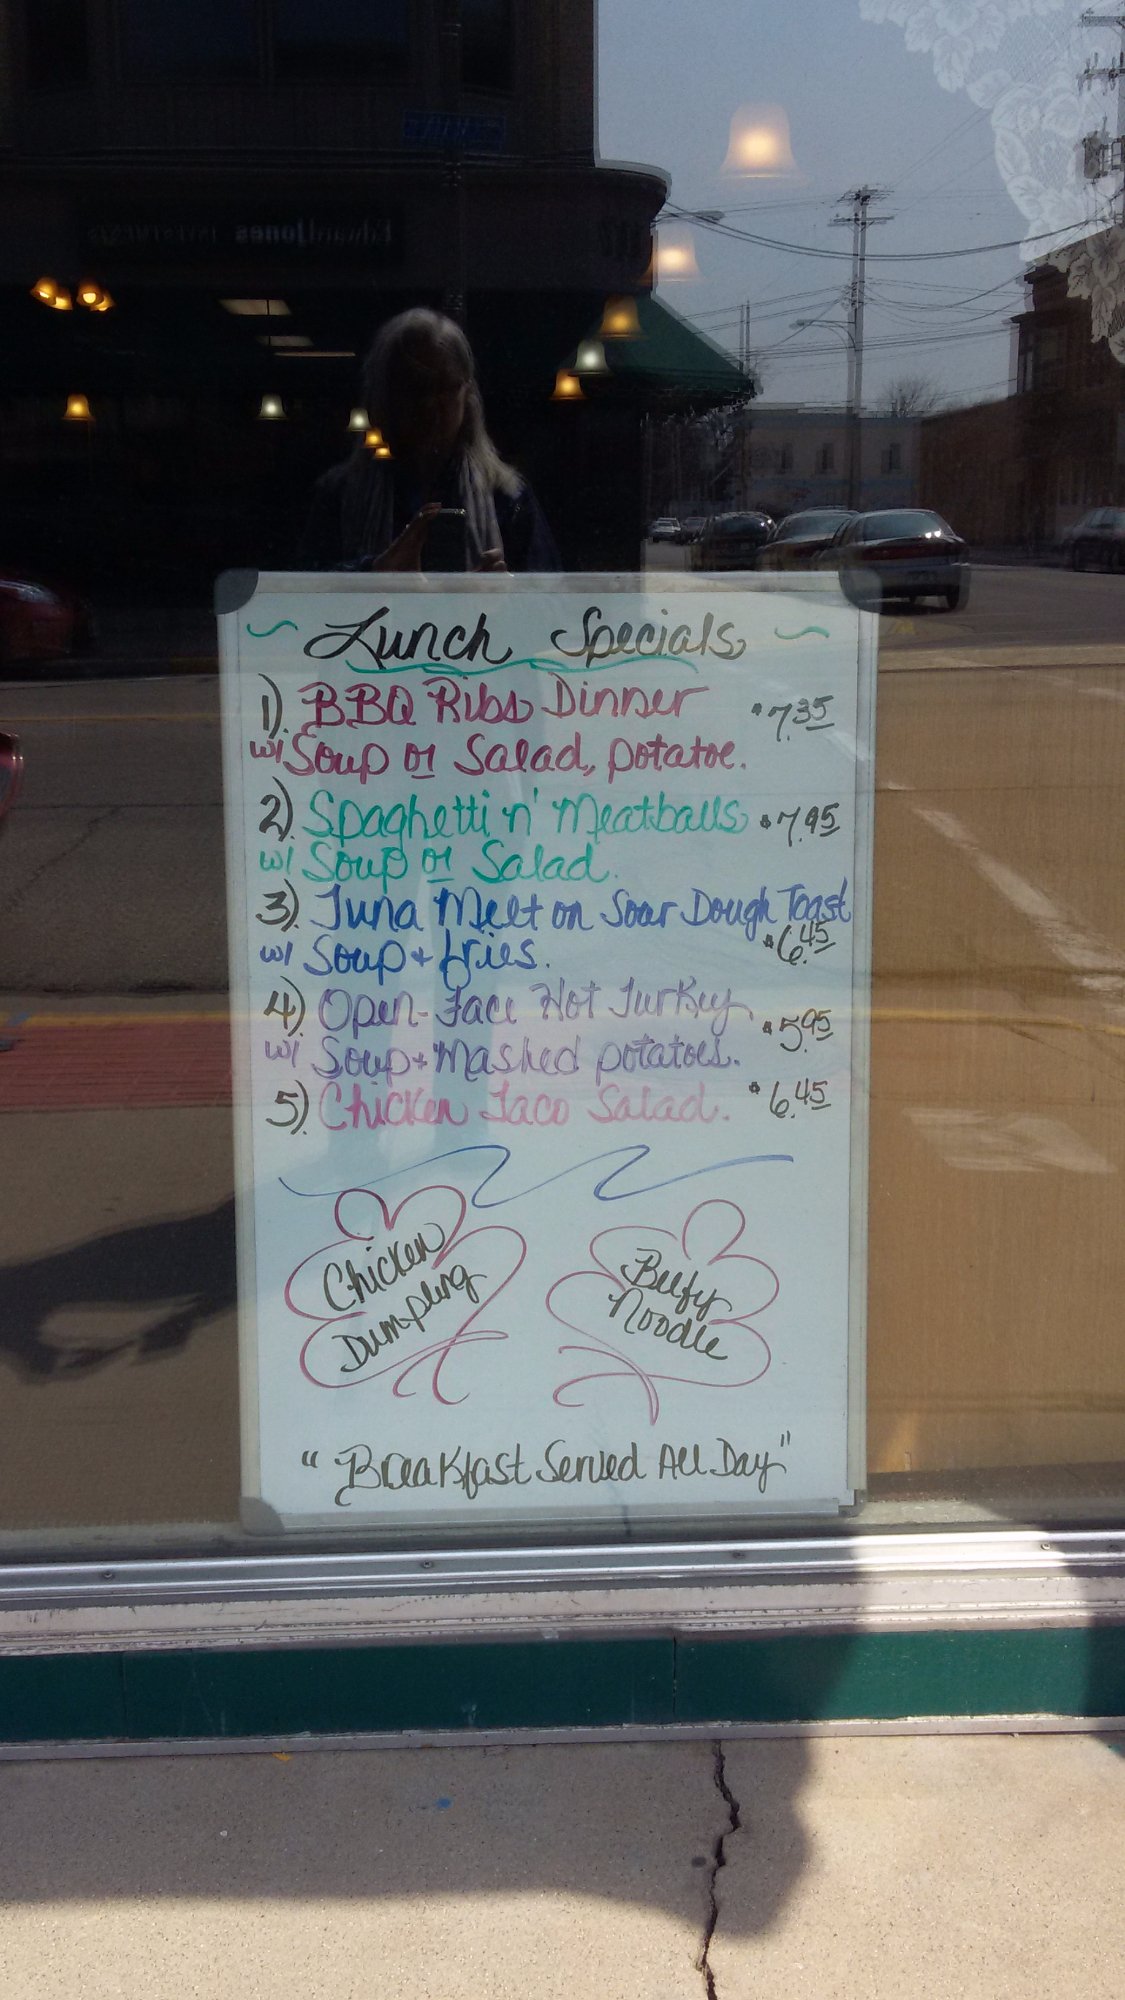 Edward Jones INVESTMENTS
~ Lunch Specials ~
1). BBQ Ribs Dinner $7.35
w/ Soup or Salad, potatoe.
2). Spaghetti n' Meatballs $7.95
w/ Soup or Salad.
3). Tuna Melt on Sour Dough Toast
w/ Soup + fries. $6.45
4). Open-Face Hot Turkey
w/ Soup + Mashed potatoes. $5.95
5). Chicken Taco Salad. $6.45
Chicken
Dumpling
Beefy
Noodle
"Breakfast Served All Day"